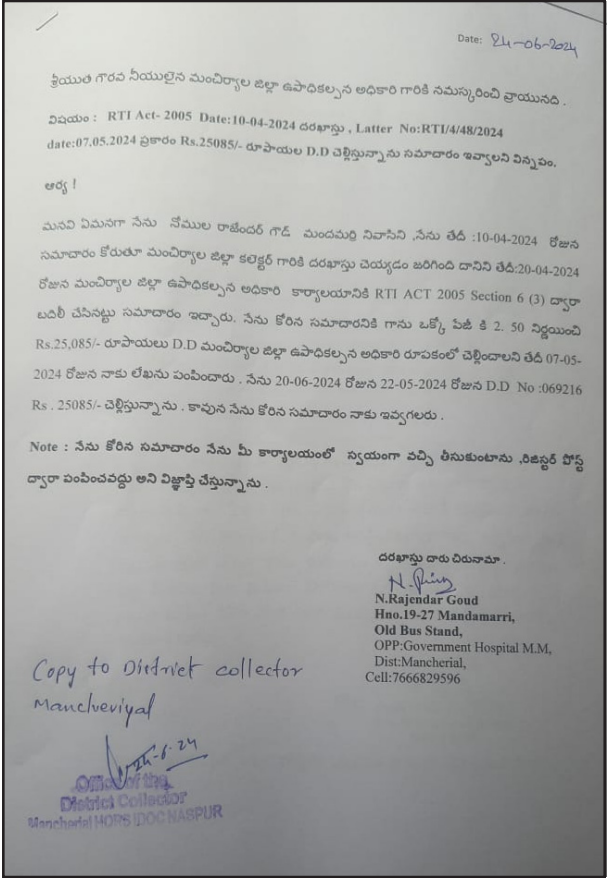 Date: 24-06-2024
శ్రీయుత గౌరవ నీయులైన మంచిర్యాల జిల్లా ఉపాధికల్పన అధికారి గారికి నమస్కరించి వ్రాయునది .
విషయం : RTI Act- 2005 Date:10-04-2024 దరఖాస్తు , Latter No:RTI/4/48/2024
date:07.05.2024 ప్రకారం Rs.25085/- రూపాయల D.D చెల్లిస్తున్నాను సమాచారం ఇవ్వాలని విన్నపం.
ఆర్య !
మనవి ఏమనగా నేను నోముల రాజేందర్ గౌడ్ మందమర్రి నివాసిని ,నేను తేదీ :10-04-2024 రోజున
సమాచారం కోరుతూ మంచిర్యాల జిల్లా కలెక్టర్ గారికి దరఖాస్తు చెయ్యడం జరిగింది దానిని తేదీ:20-04-2024
రోజున మంచిర్యాల జిల్లా ఉపాధికల్పన అధికారి కార్యాలయానికి RTI ACT 2005 Section 6 (3) ద్వారా
బదిలీ చేసినట్టు సమాచారం ఇచ్చారు. నేను కోరిన సమాచారనికి గాను ఒక్కో పేజీ కి 2. 50 నిర్ణయించి
Rs.25,085/- రూపాయలు D.D మంచిర్యాల జిల్లా ఉపాధికల్పన అధికారి రూపకంలో చెల్లించాలని తేదీ 07-05-
2024 రోజున నాకు లేఖను పంపించారు . నేను 20-06-2024 రోజున 22-05-2024 రోజున D.D No :069216
Rs . 25085/- చెల్లిస్తున్నాను . కావున నేను కోరిన సమాచారం నాకు ఇవ్వగలరు .
Note : నేను కోరిన సమాచారం నేను మీ కార్యాలయంలో స్వయంగా వచ్చి తీసుకుంటాను ,రిజిస్టర్ పోస్ట్
ద్వారా పంపించవద్దు అని విజ్ఞాప్తి చేస్తున్నాను .
దరఖాస్తు దారు చిరునామా .
N.Rajendar Goud
Hno.19-27 Mandamarri,
Old Bus Stand,
OPP:Government Hospital M.M,
Dist:Mancherial,
Cell:7666829596
Copy to District collector
Mancheriyal
24-6-24
Office of the
District Collector
Mancherial HQRS IDOC NASPUR